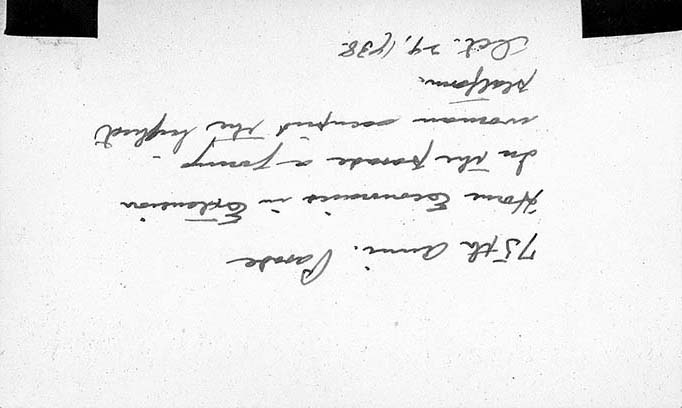 75th Anni. Parade
Home Economics in Extension
In the parade a farm
woman occupied the highest
platform.
Oct. 29, 1938